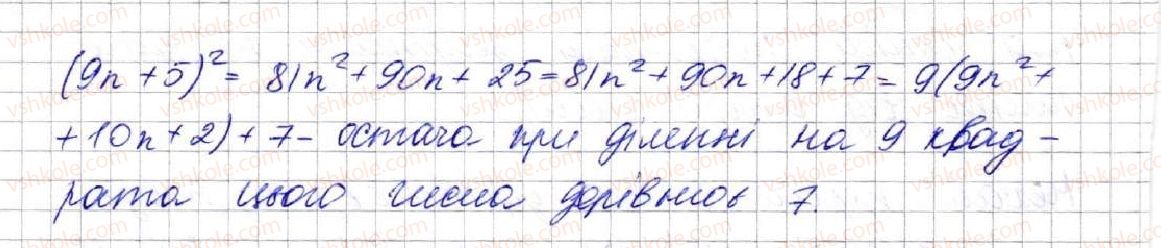 (9n + 5)² = 81n² + 90n + 25 = 81n² + 90n + 18 + 7 = 9(9n² +
+ 10n + 2) + 7 - остача при діленні на 9 квад-
рата цього числа дорівнює 7.